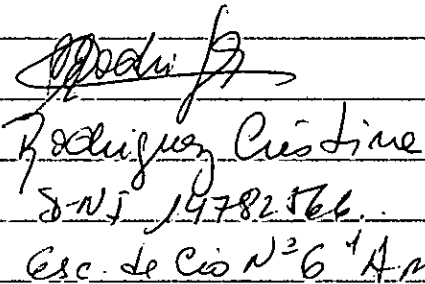 Rodriguez Cristina
DNI 14782566.
Esc. de Cio Nº 6